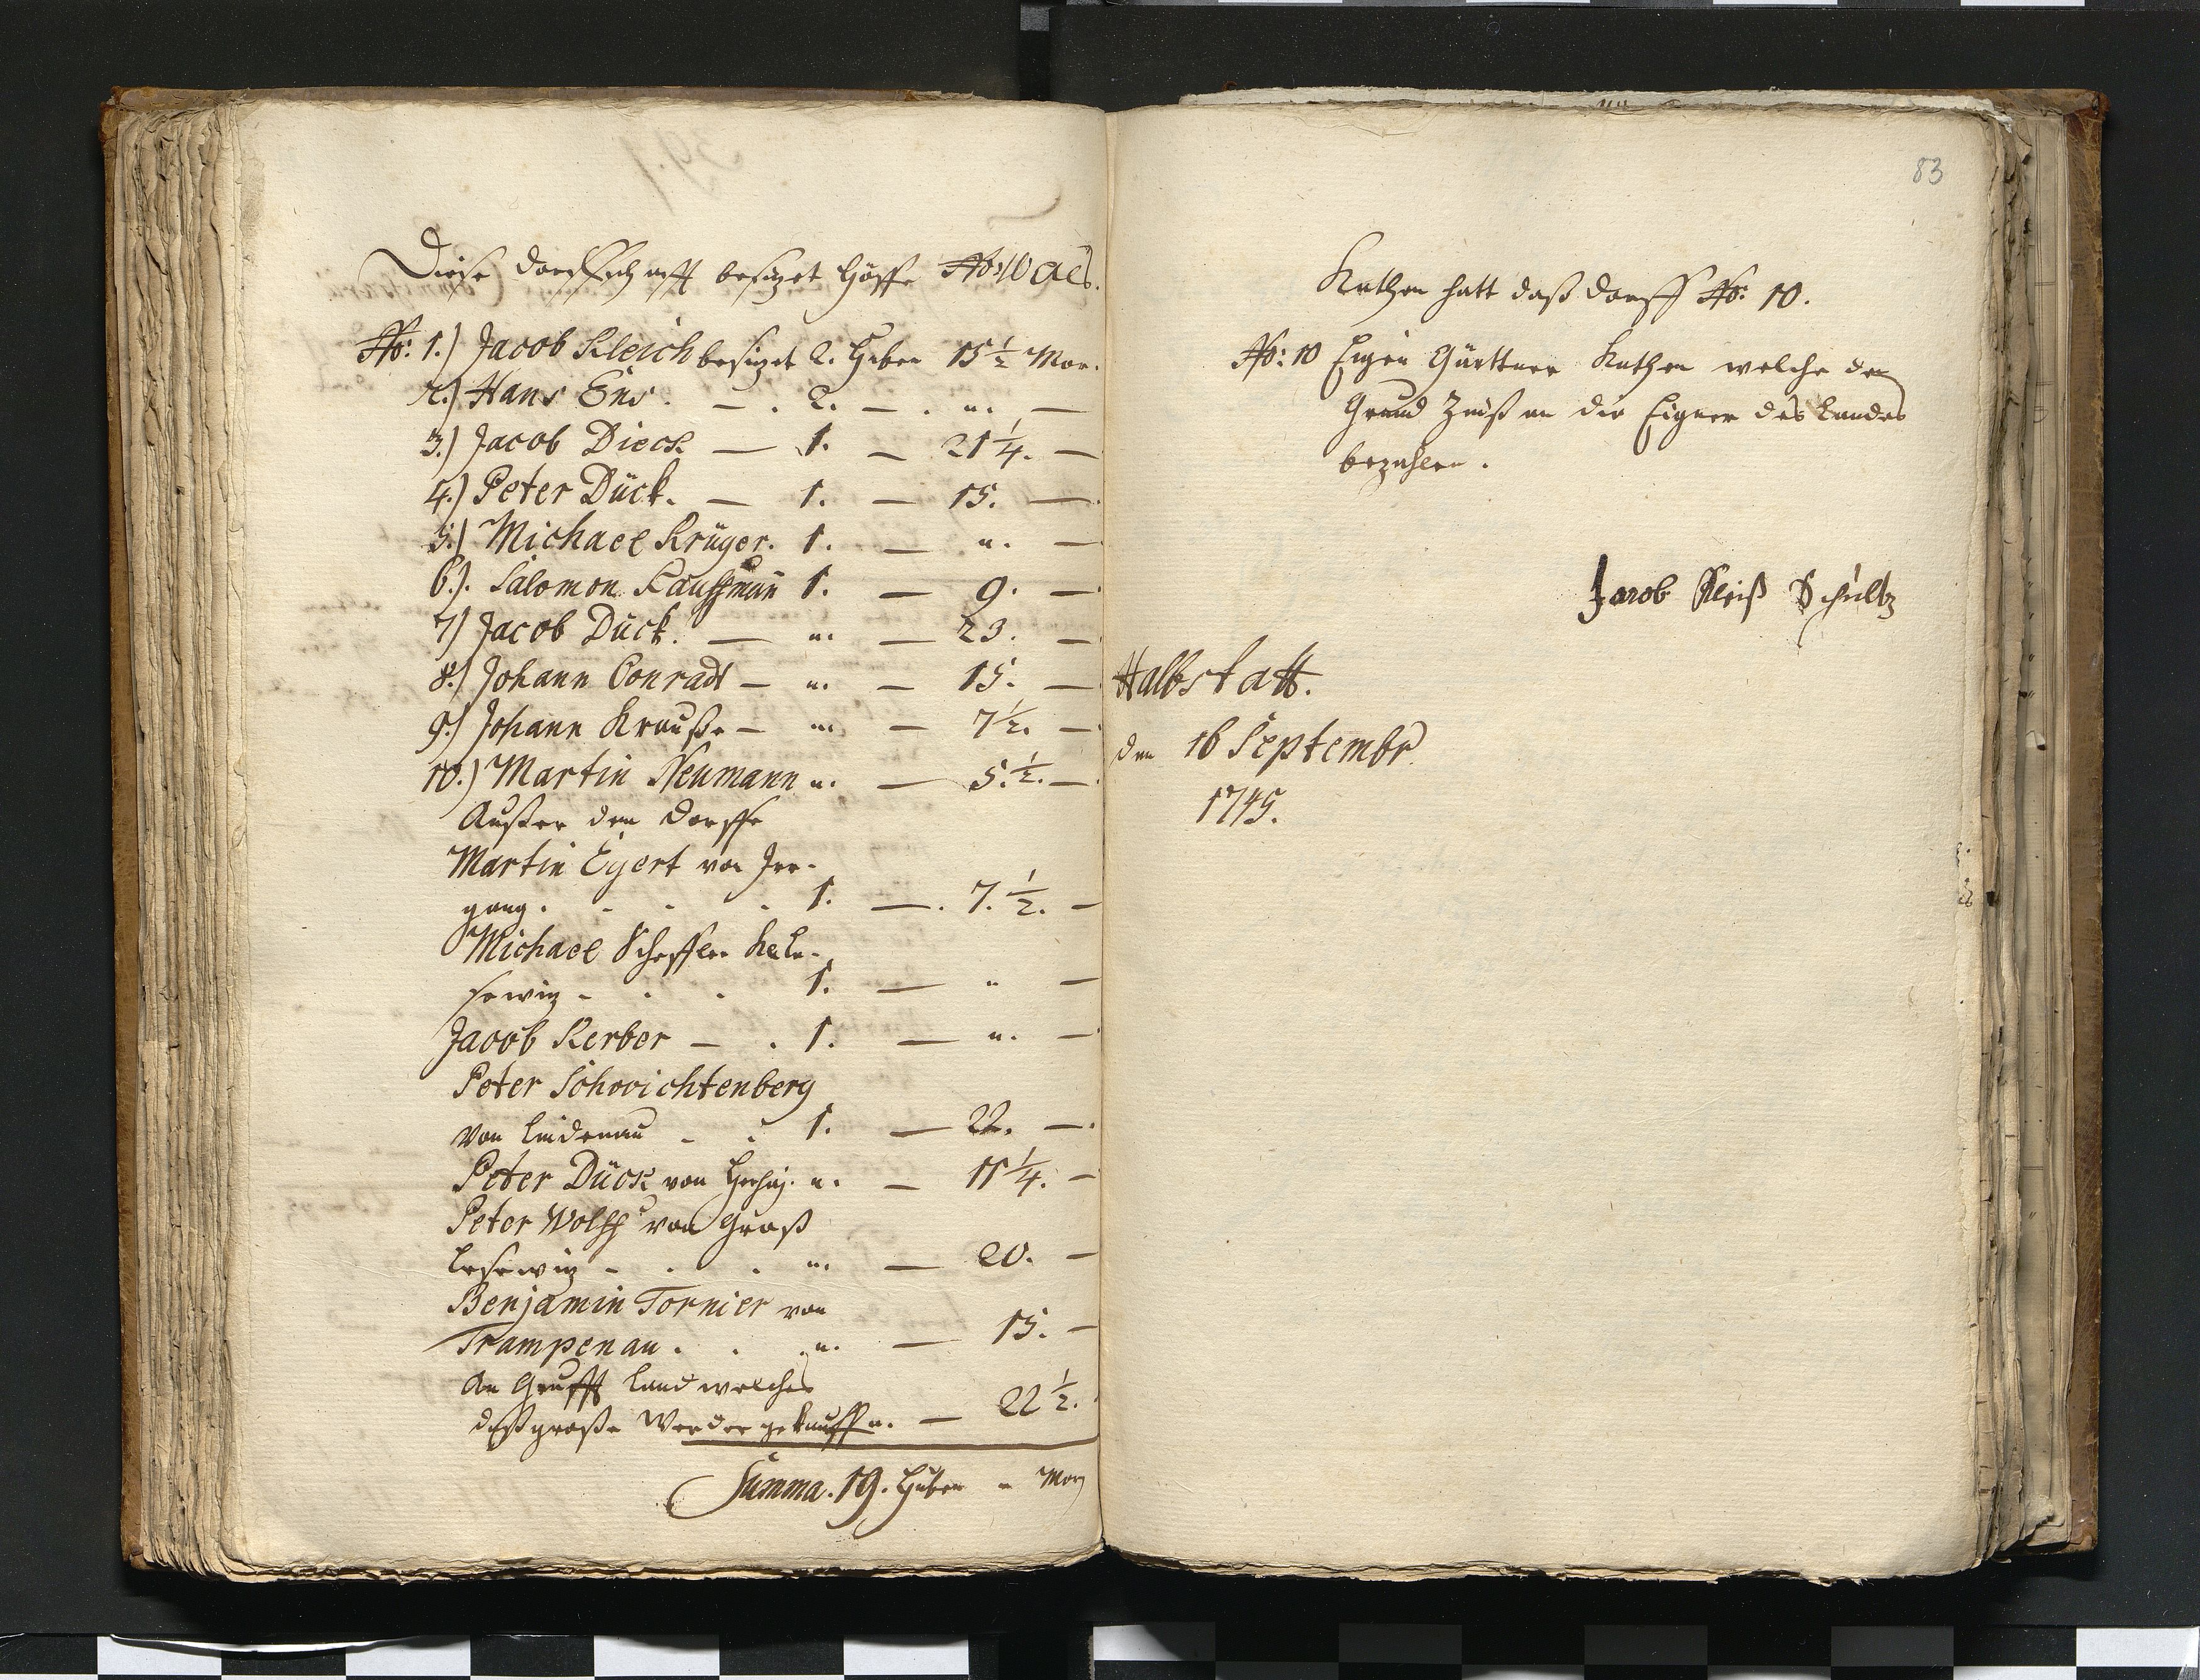 Diese Dorffschafft besizet Höffe No: 10 als.
No: 1.) Jacob Kleich besizet 2. Huben 15 1/2 Mor.
2.) Hans Ens. — . 2. — . „. —
3.) Jacob Dieck — 1. — 21 1/4. —
4.) Peter Dück. — 1. — 15. —
5.) Michael Krüger. 1. — „. —
6.). Salomon Kauffman 1. — 9. —
7) Jacob Dück. — „. — 23. —
8.) Johann Conradt — „. — 15. —
9.) Johann Krauße — „. — 7 1/2. —
10.) Martin Neumann „. — 5. 1/2. —
Außer dem Dorffe
Martin Eyert von Irr-
gang. - - - 1. — . 7. 1/2. —
Michael Scheffler
1. — „ —
Jacob Kerber — . 1. — „. —
Peter Schwichtenberg
von Lindenau - - 1. — 22. —.
Peter Dück von „. — 11 1/4. —
Peter Wolff von Groß
Lesewiz - . . „. — 20. —
Benjamin Tornier von
Trampenau . . „. — 15. —
An Land welches
daß große Werder gekaufft „. — 22 1/2.
Summa. 19. Huben „ Morg
83
Kathen hatt daß Dorff No: 10.
No: 10 Eigen Gärttner Kathen welche den
Grund Zinß an die Eigner des Landes
bezahlen.
Jacob Kleiß Schultz
Halbstatt.
den 16 Septembr.
1745.